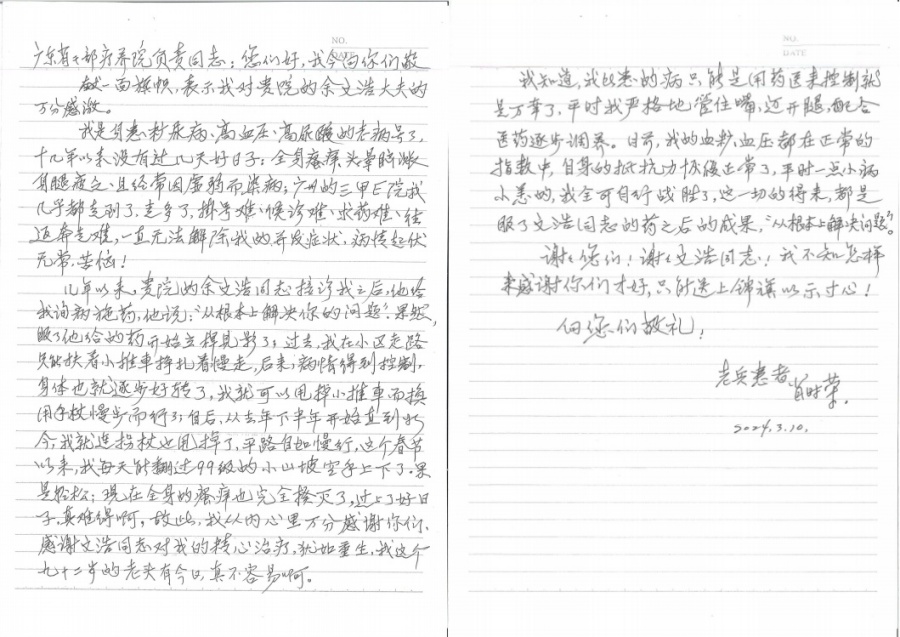 NO.
DATE
广东省干部疗养院负责同志：您们好，我今向你们敬
献一面旗帜，表示我对贵院的余文浩大夫的
万分感激。
我是身患糖尿病、高血压、高尿酸的老病号了，
十几年以来没有过几天好日子：全身瘙痒、头晕脑胀
身腿疲乏、且经常因虚弱而染病；广州的三甲医院我
几乎都走到了，走多了，掛号难、候诊难、求药难、往
返奔走难，一直无法解除我的并发症状，病情起伏
无常，苦恼！
几年以来，贵院的余文浩同志接诊我之后，他给
我询病施药，他说："从根本上解决你的问题"。果然，
服了他给的药开始立桿见影了；过去，我在小区走路
只能扶着小推車挣扎着慢走，后来，病情得到控制，
身体也就逐步好转了，我就可以甩掉小推車而换
用手杖慢步而行了；自后，从去年下半年开始直到
今，我就连拐杖也甩掉了，平路自如慢行，这个春节
以来，我每天能翻过99级的小山坡空手上下了。果
是轻松；现在全身的瘙痒也完全扑灭了，过上了好日
子，真难得啊，故此，我从内心里万分感谢你们、
感谢文浩同志对我的精心治疗，犹如重生，我这个
九十二岁的老头有今日，真不容易啊。
NO.
DATE
我知道，我比患的病只能是用药医来控制就
是万幸了，平时我严格地管住嘴，迈开腿，配合
医药逐步调养。日前，我的血糖、血压都在正常的
指数中，自身的抵抗力恢復正常了，平时一点小病
小恙的，我全可自行战胜了，这一切的得来，都是
服了文浩同志的药之后的成果，"从根本上解决问题"。
谢谢您们！谢谢文浩同志！我不知怎样
来感谢你们才好，只能送上锦旗以示寸心！
向您们敬礼！
老兵患者
肖时荣。
2024.3.10.